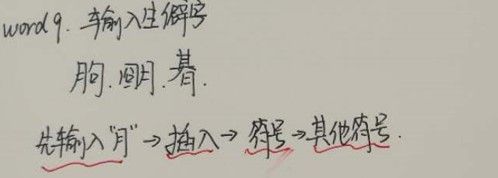 word 9. 输入生僻字
朐. 朙. 朞.
先输入"月"→插入→符号→其他符号.